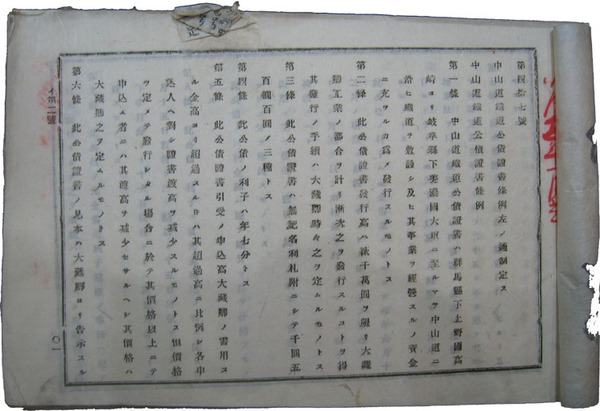 第四拾七號
中山道鐵道公債證書條例左ノ通制定ス
中山道鐵道公債證書條例
第一條 中山道鐵道公債證書ハ群馬縣下上野國高
崎ヨリ岐阜縣下美濃國大垣ニ至ルマテ中山道ニ
沿ヒ鐵道ヲ敷設シ及ヒ其事業ヲ經營スルノ資金
ニ充ツルカ爲メ發行スルモノトス
第二條 此公債證書發行高ハ貳千萬圓ヲ限リ大藏
卿工業ノ都合ヲ計リ漸次之ヲ發行スルコトヲ得
其發行ノ手續ハ大藏卿時々之ヲ定ムルモノトス
第三條 此公債證書ハ無記名利札附ニシテ千圓五
百圓百圓ノ三種トス
第四條 此公債ノ利子ハ年七分トス
第五條 此公債證書引受ノ申込高大藏卿ノ需用ス
ル金高ヨリ超過スルトキハ其超過高ニ比例シ各申
込人ヘ對シ證書渡高ヲ减少スルモノトス但價格
ヲ定メテ發行シタル場合ニ於テ其價格以上ニテ
申込ム者ニハ其渡高ヲ减少セサルヘシ其價格ハ
大藏卿之ヲ定ムルモノトス
第六條 此公債證書ノ見本ハ大藏卿ヨリ告示スル
イ第二號
〇一